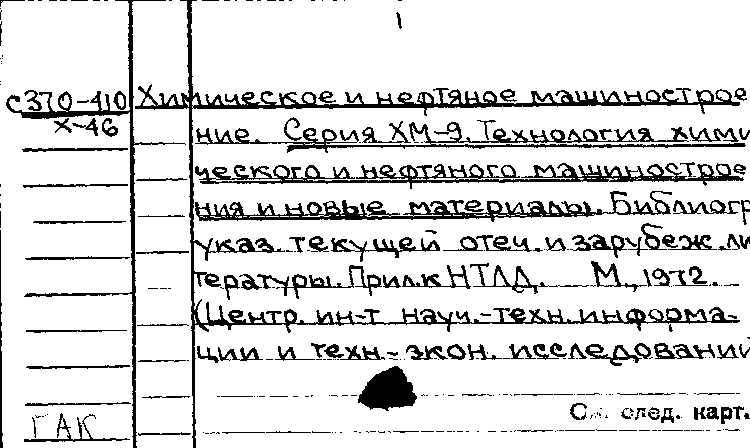 1
с370-410 Химическое и нефтяное машинострое
х-46 ние. Серия ХМ-9. Технология хими
ческого и нефтяного машинострое
ния и новые материалы. Библиогр
указ. текущей отеч. и зарубеж. ли
тературы. Прил. к НТЛД. М., 1972.
(Центр. ин-т науч.-техн. информа-
ции и техн.-экон. исследований
См. след. карт.
ГАК